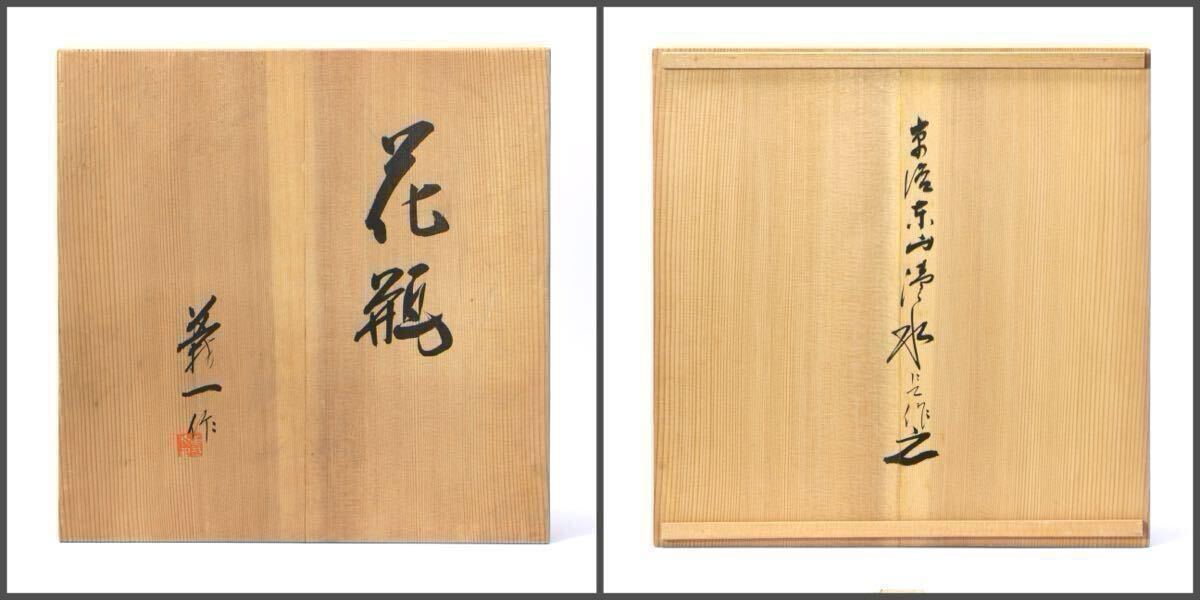 花瓶
義一作
東山清水
作之